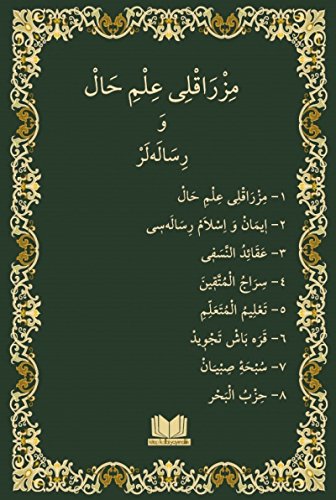 مِزْرَاقْلِى عِلْمِ حَالْ
وَ
رِسَالَهلَرْ
١- مِزْرَاقْلِى عِلْمِ حَالْ
٢- اِيمَانْ وَ اِسْلَامْ رِسَالَهسِى
٣- عَقَائِدُ النَّسَفِى
٤- سِرَاجُ الْمُتَّقِينَ
٥- تَعْلِيمُ الْمُتَعَلِّمِ
٦- قَرَه بَاشْ تَجْوِيدْ
٧- سُبْحَۀِ صِبْيَانْ
٨- حِزْبُ الْبَحْر